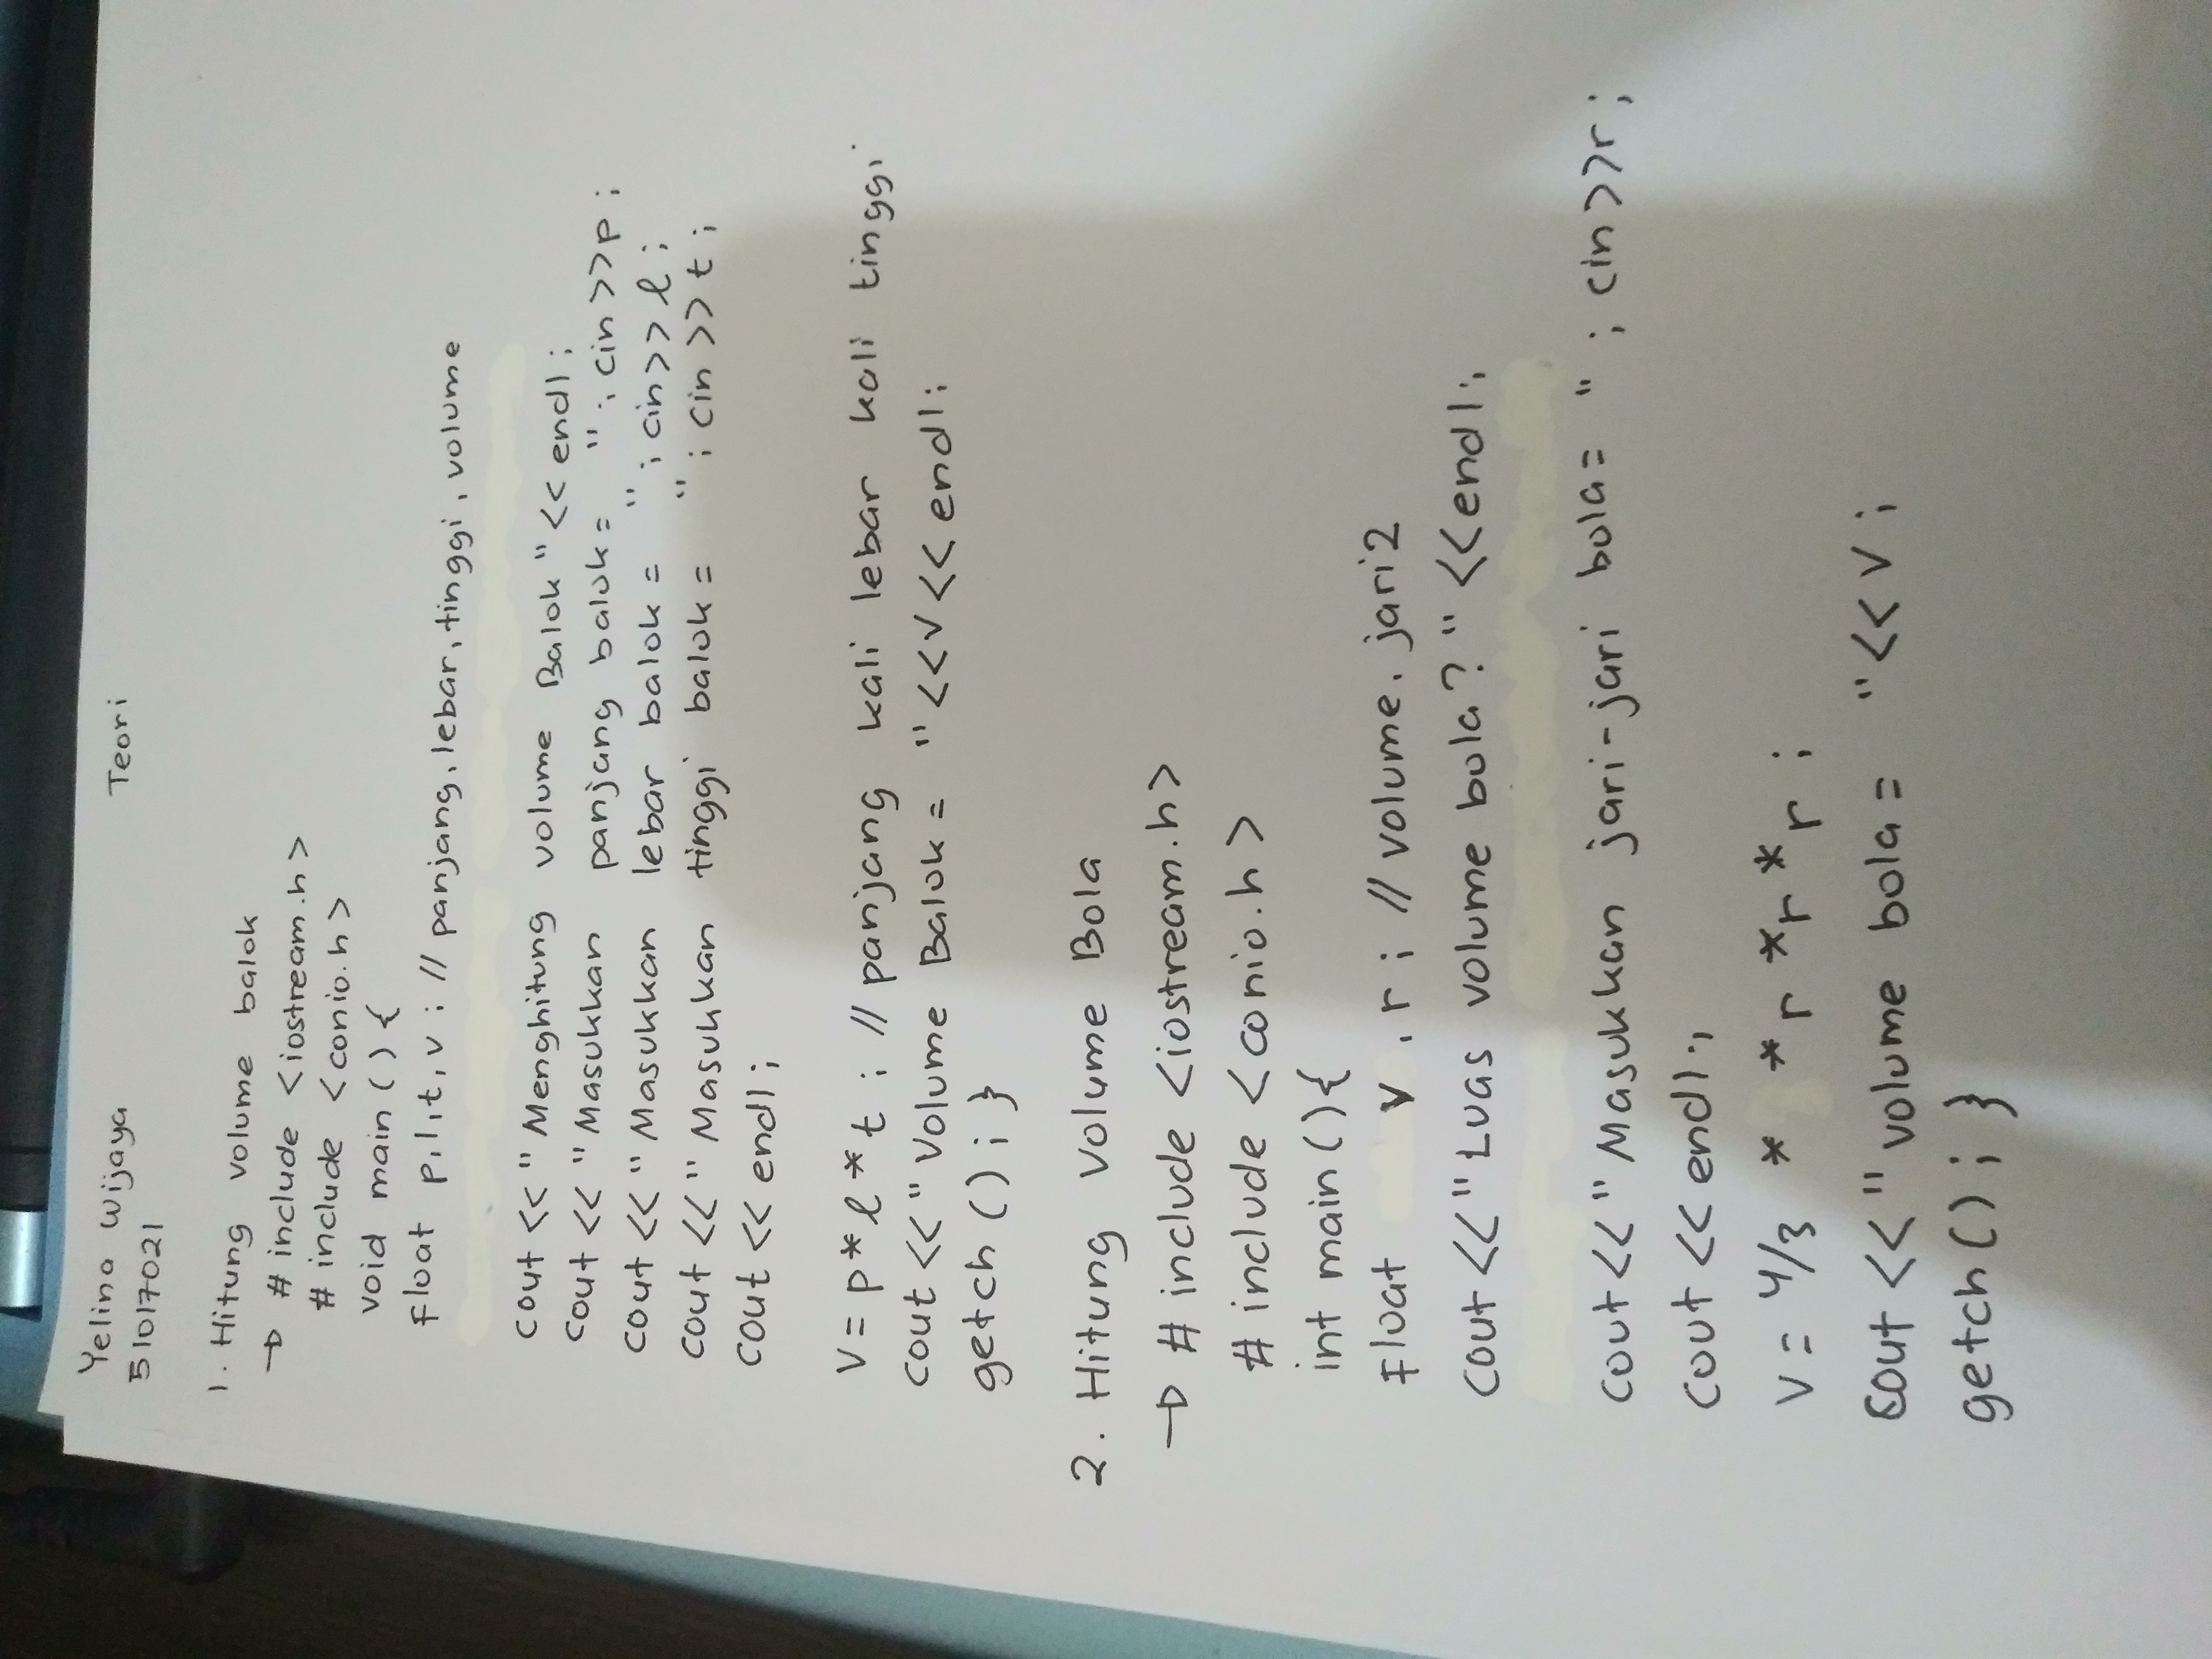 Yelina Wijaya
Teori
51017021
1. Hitung volume balok
→ # include <iostream.h>
# include <conio.h>
void main () {
float p,l,t,v ; // panjang, lebar, tinggi, volume
cout << " Menghitung volume Balok " << endl ;
cout << " Masukkan panjang balok = " ; cin >> p ;
cout << " Masukkan lebar balok = " ; cin >> l ;
cout << " Masukkan tinggi balok = " ; cin >> t ;
cout << endl ;
V = p * l * t ; // panjang kali lebar kali tinggi
cout << " Volume Balok = " << v << endl ;
getch () ; }
2. Hitung Volume Bola
→ # include <iostream.h>
# include <conio.h>
int main () {
float v , r ; // volume, jari2
cout << " Luas volume bola ? " << endl ;
cout << " Masukkan jari-jari bola = " ; cin >> r ;
cout << endl ;
V = 4/3 * * r * r * r ;
cout << " volume bola = " << V ;
getch () ; }